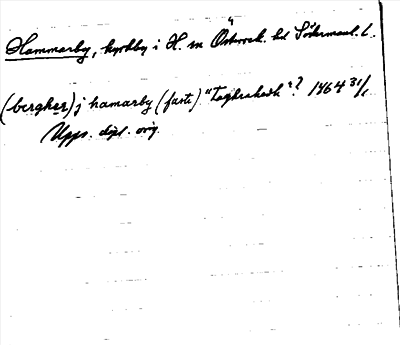 Hammarby, kyrkby i H. sn Österrek. hd Södermanl. l.
(bergher) j hamarby (faste) " "? 1464 31/1
Upps. dipl. orig.